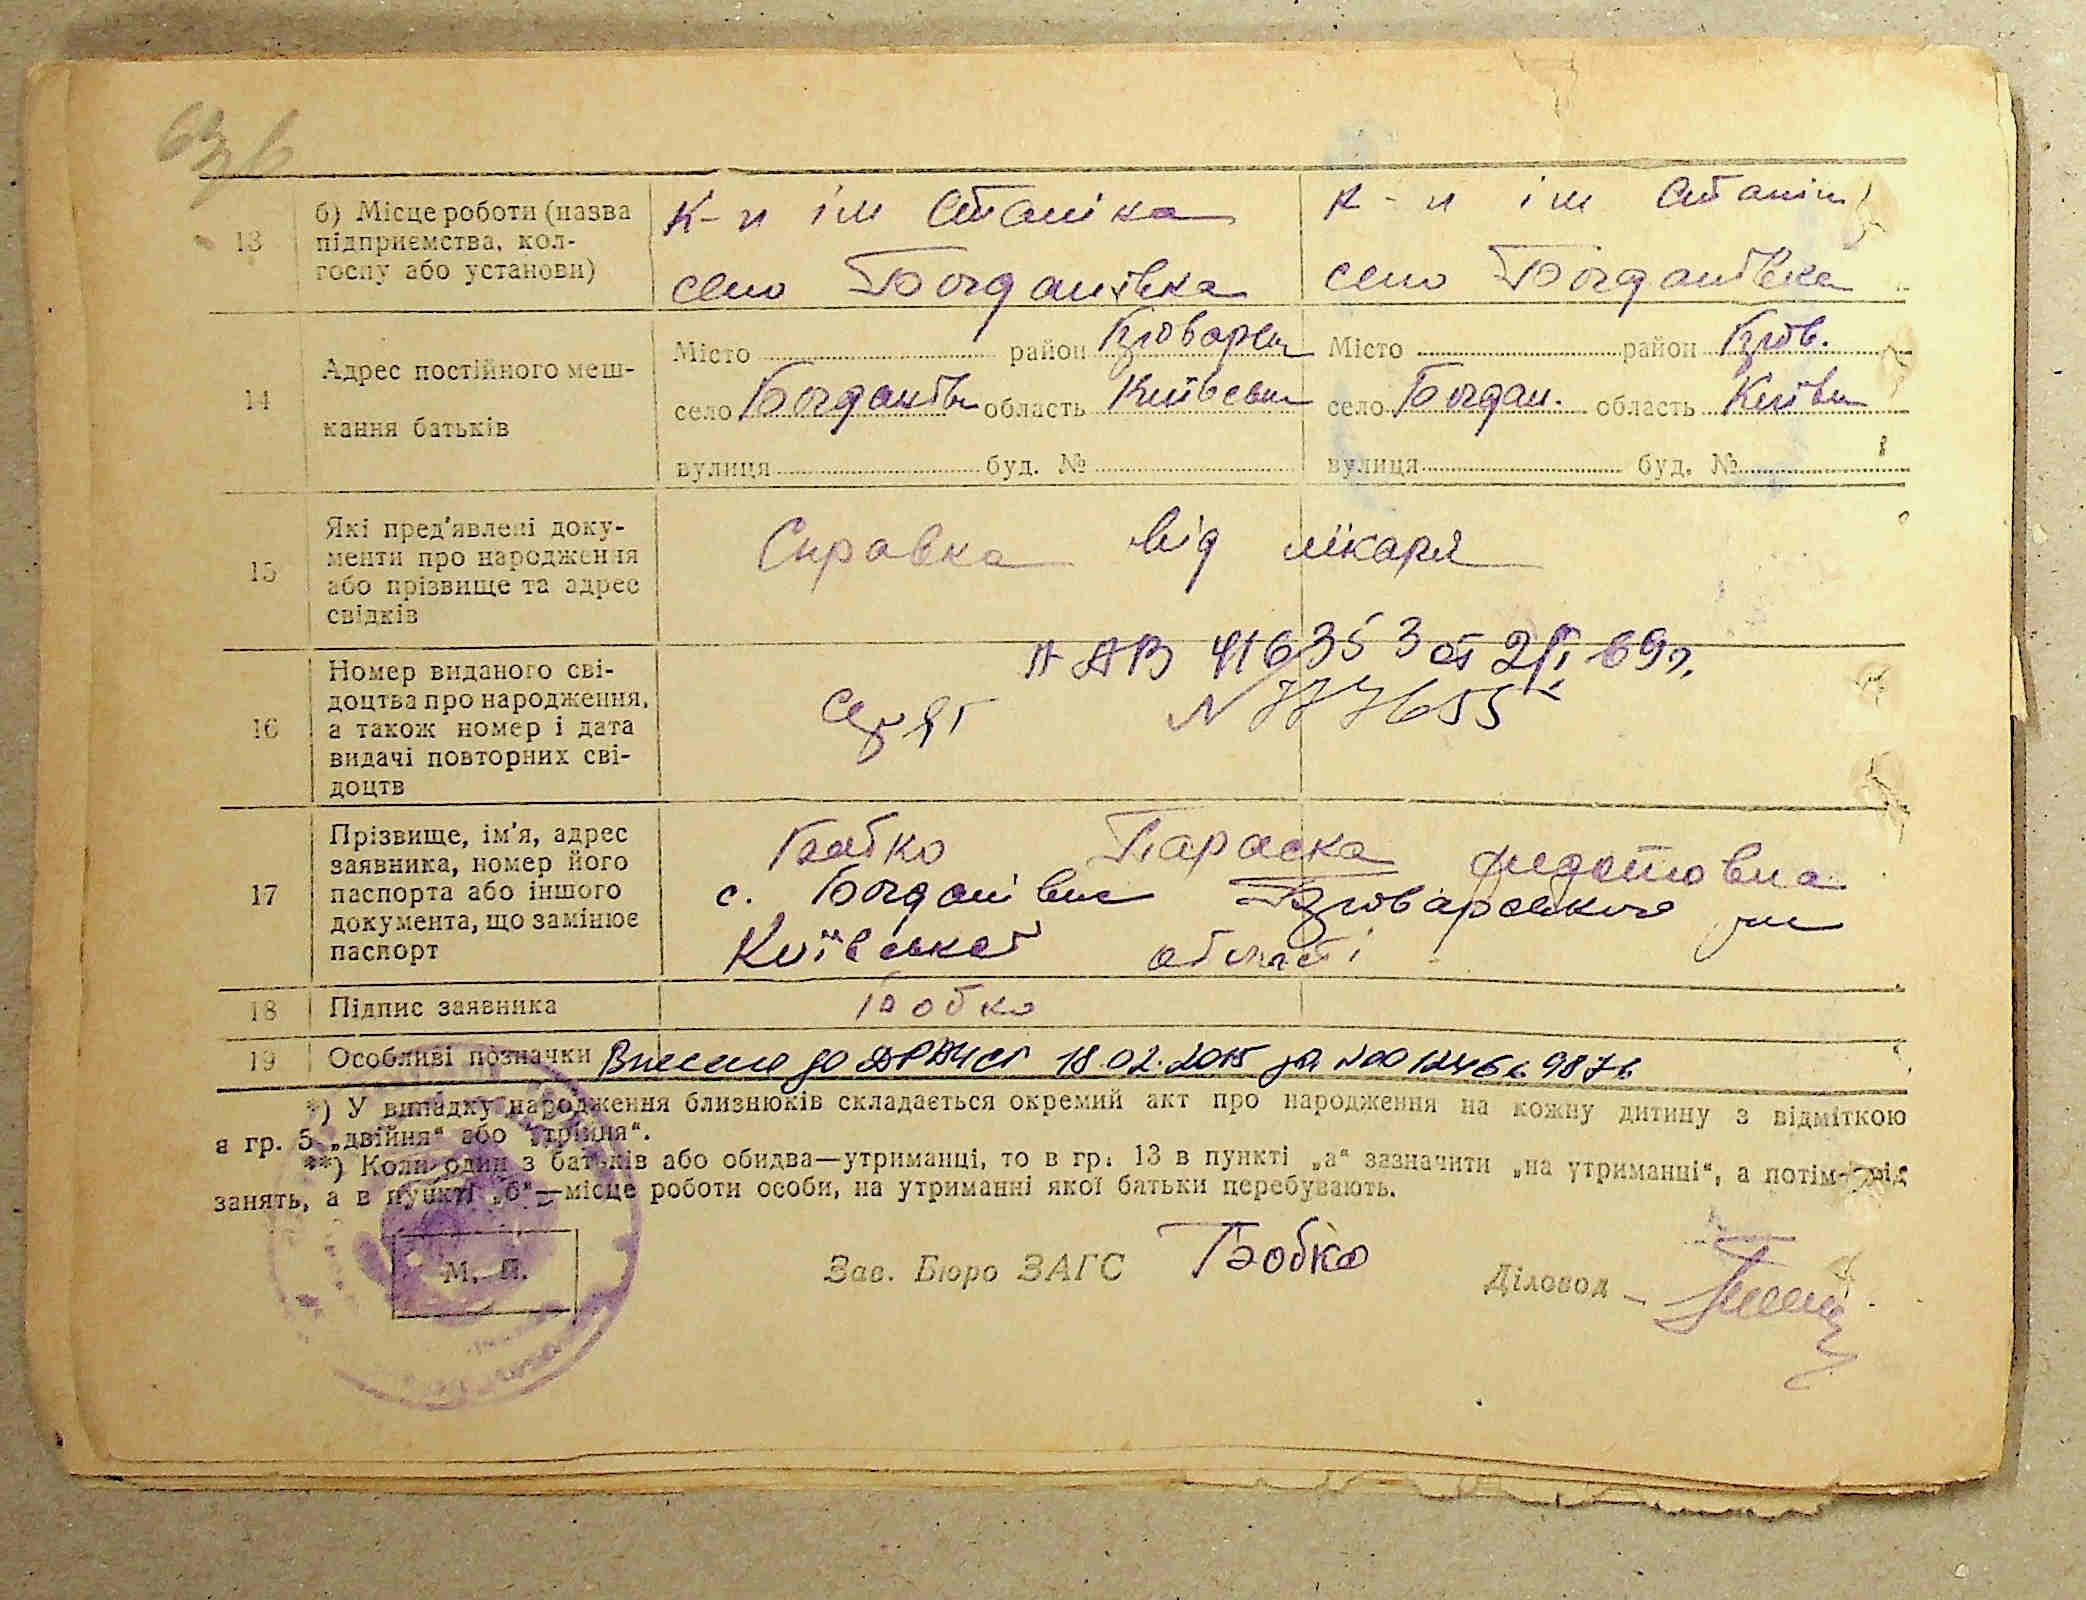 13
б) Місце роботи (назва
підприємства, кол-
госпу або установи)
К-п ім Сталіна
село Богданівка
К-п ім Сталін
село Богданівка
14
Адрес постійного меш-
кання батьків
Місто район Броварськ
село Богданівк область Київськ
вулиця буд. №
Місто район Бров.
село Богдан. область Київськ
вулиця буд. №
15
Які пред'явлені доку-
менти про народження
або прізвище та адрес
свідків
Справка від лікаря
16
Номер виданого сві-
доцтва про народження,
а також номер і дата
видачі повторних сві-
доцтв
416353 69р.
№
17
Прізвище, ім'я, адрес
заявника, номер його
паспорта або іншого
документа, що замінює
паспорт
Бобко Параска Федотовна
с. Богданівка Броварського р-н
Київської області
18
Підпис заявника
Бобко
19
Особливі позначки Внесено до ДРАЦСГ 18.02.2015 за №
*) У випадку народження близнюків складається окремий акт про народження на кожну дитину з відміткою
в гр. 5 „двійня“ або „трійня“.
**) Коли один з батьків або обидва—утриманці, то в гр. 13 в пункті „а“ зазначити „на утриманні“, а потім рід
занять, а в пункті „б“—місце роботи особи, на утриманні якої батьки перебувають.
М. П.
Зав. Бюро ЗАГС Бобко
Діловод